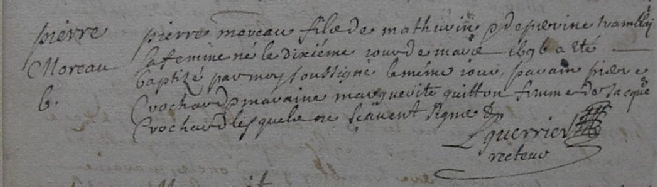 pierre
Moreau
b.
pierre moreau fils de mathurin & de perine
sa femme né le dixième iour de mars 1696 a été
baptizé par moy soussigné le même iour, parain pierre
Crochard & maraine marguerite quitton femme de Jacque
Crochard lesquels ne sçavent signer &
Guerrier
recteur